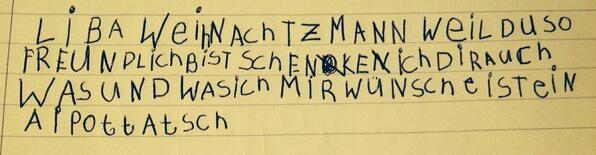 LiBA WEihNAchTZMANN WEiLDUSO
FREUNDLichBiST SchENKEN ichDiRAUCh
WASUNDWASich MiRWÜNSchEiSTEiN
AiPOttAtSch